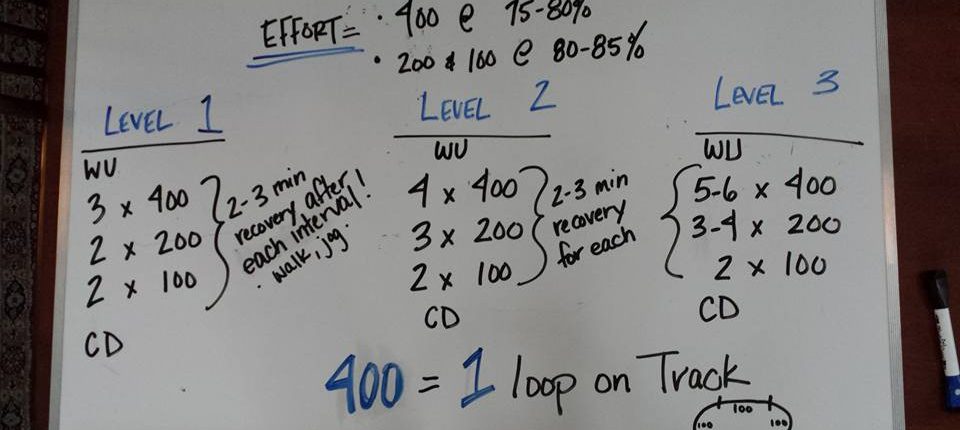 EFFORT= • 400 @ 75-80%
• 200 & 100 @ 80-85%
LEVEL 1
WU
3 x 400
2 x 200
2 x 100
2-3 min
recovery after
each interval!
. walk, jog.
CD
LEVEL 2
WU
4 x 400
3 x 200
2 x 100
2-3 min
recovery
for each
CD
LEVEL 3
WU
5-6 x 400
3-4 x 200
2 x 100
CD
400 = 1 loop on Track
100
100 100